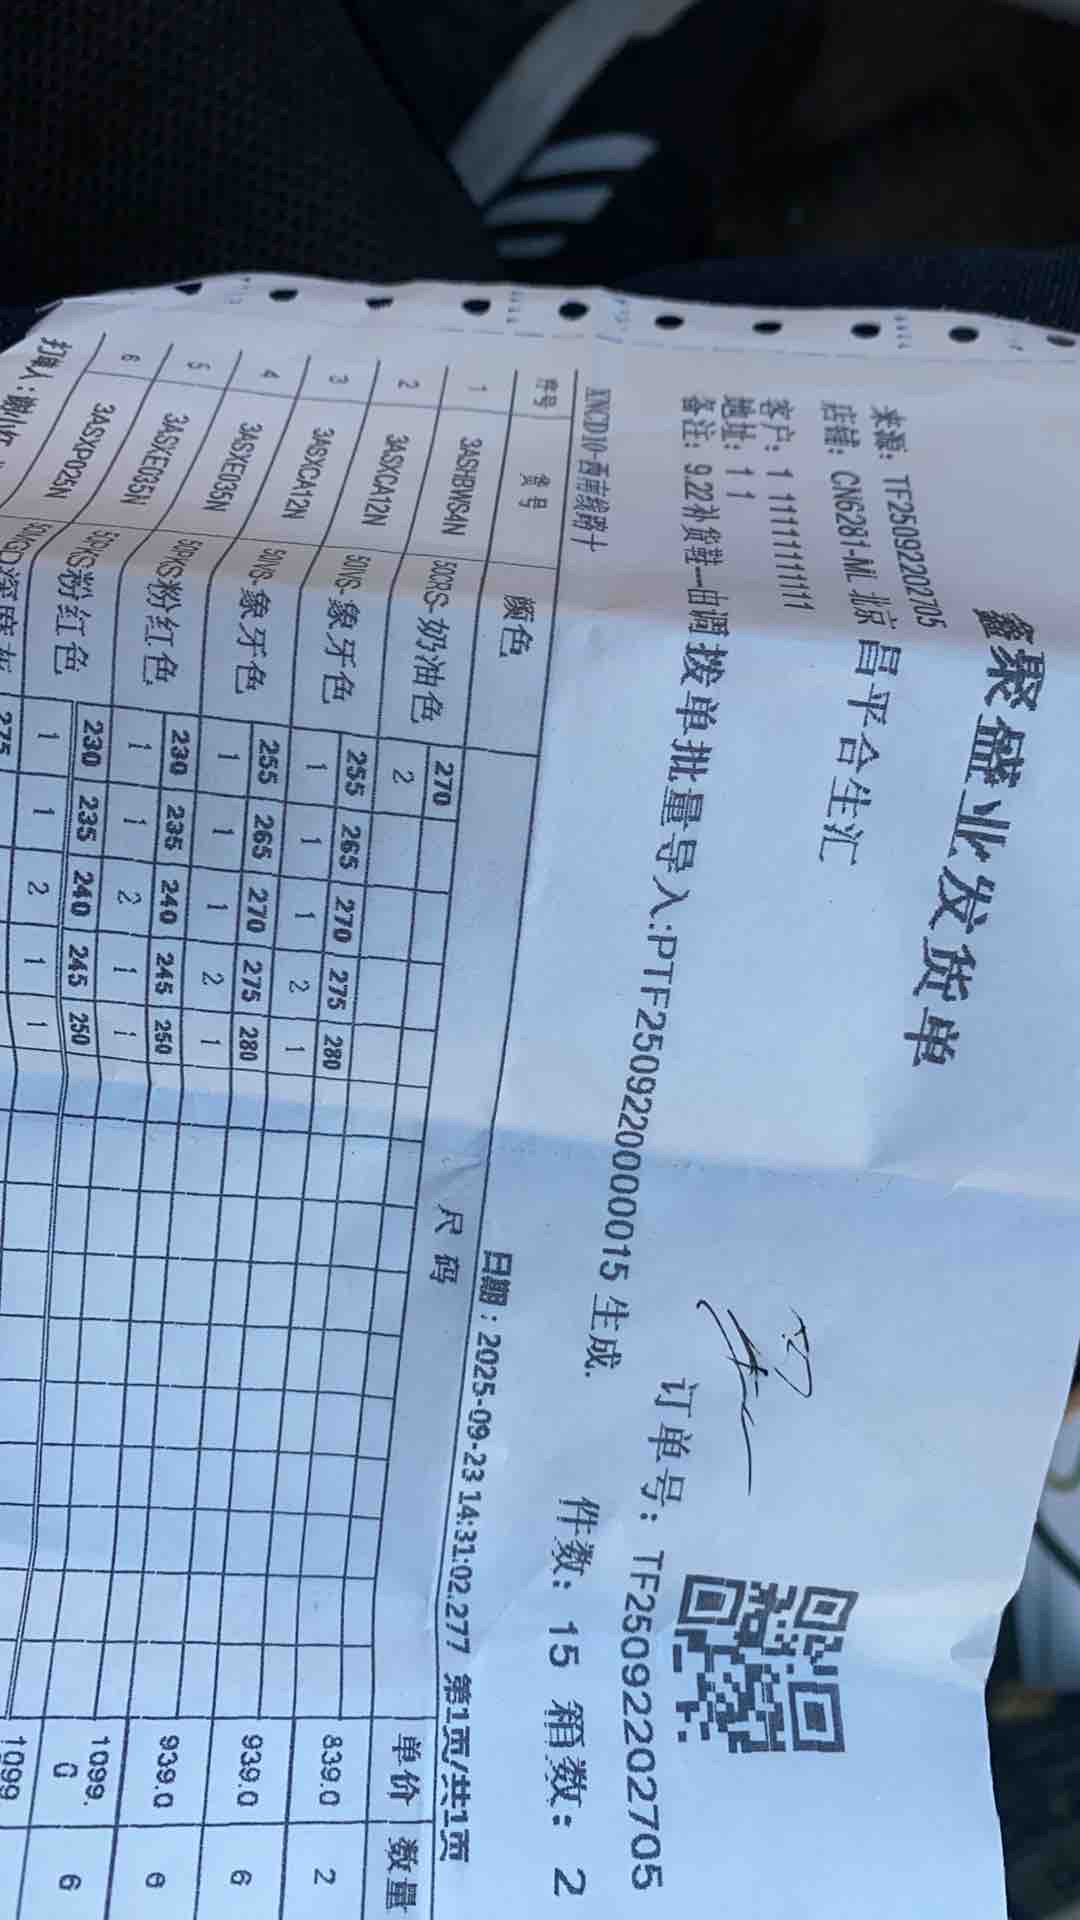 鑫聚盛业发货单
来源: TF25092202705
店铺: CN6281-ML 北京昌平合生汇
客户: 1 11111111111
地址: 1 1
备注: 9.22补货鞋一由调拨单批量导入:PTF250922000015 生成.
订单号: TF25092202705
XNCD10-西南线路十
件数: 15 箱数: 2
日期：2025-09-23 14:31:02.277 第1页/共1页
序号 货号 颜色 尺码 单价 数量
270
1 3ASHBWS4N 50CRS-奶油色 2 839.0 2
255 265 270 275 280
2 3ASXCA12N 50IVS-象牙色 1 1 1 2 1 939.0 6
255 265 270 275 280
3 3ASXCA12N 50IVS-象牙色 1 1 1 2 1 939.0 6
230 235 240 245 250
4 3ASXE035N 50PKS粉红色 1 1 2 1 1 1099.0 6
230 235 240 245 250
5 3ASXE035N 50PKS粉红色 1 1 2 1 1 1099
275
6 3ASXP025N
打单人：